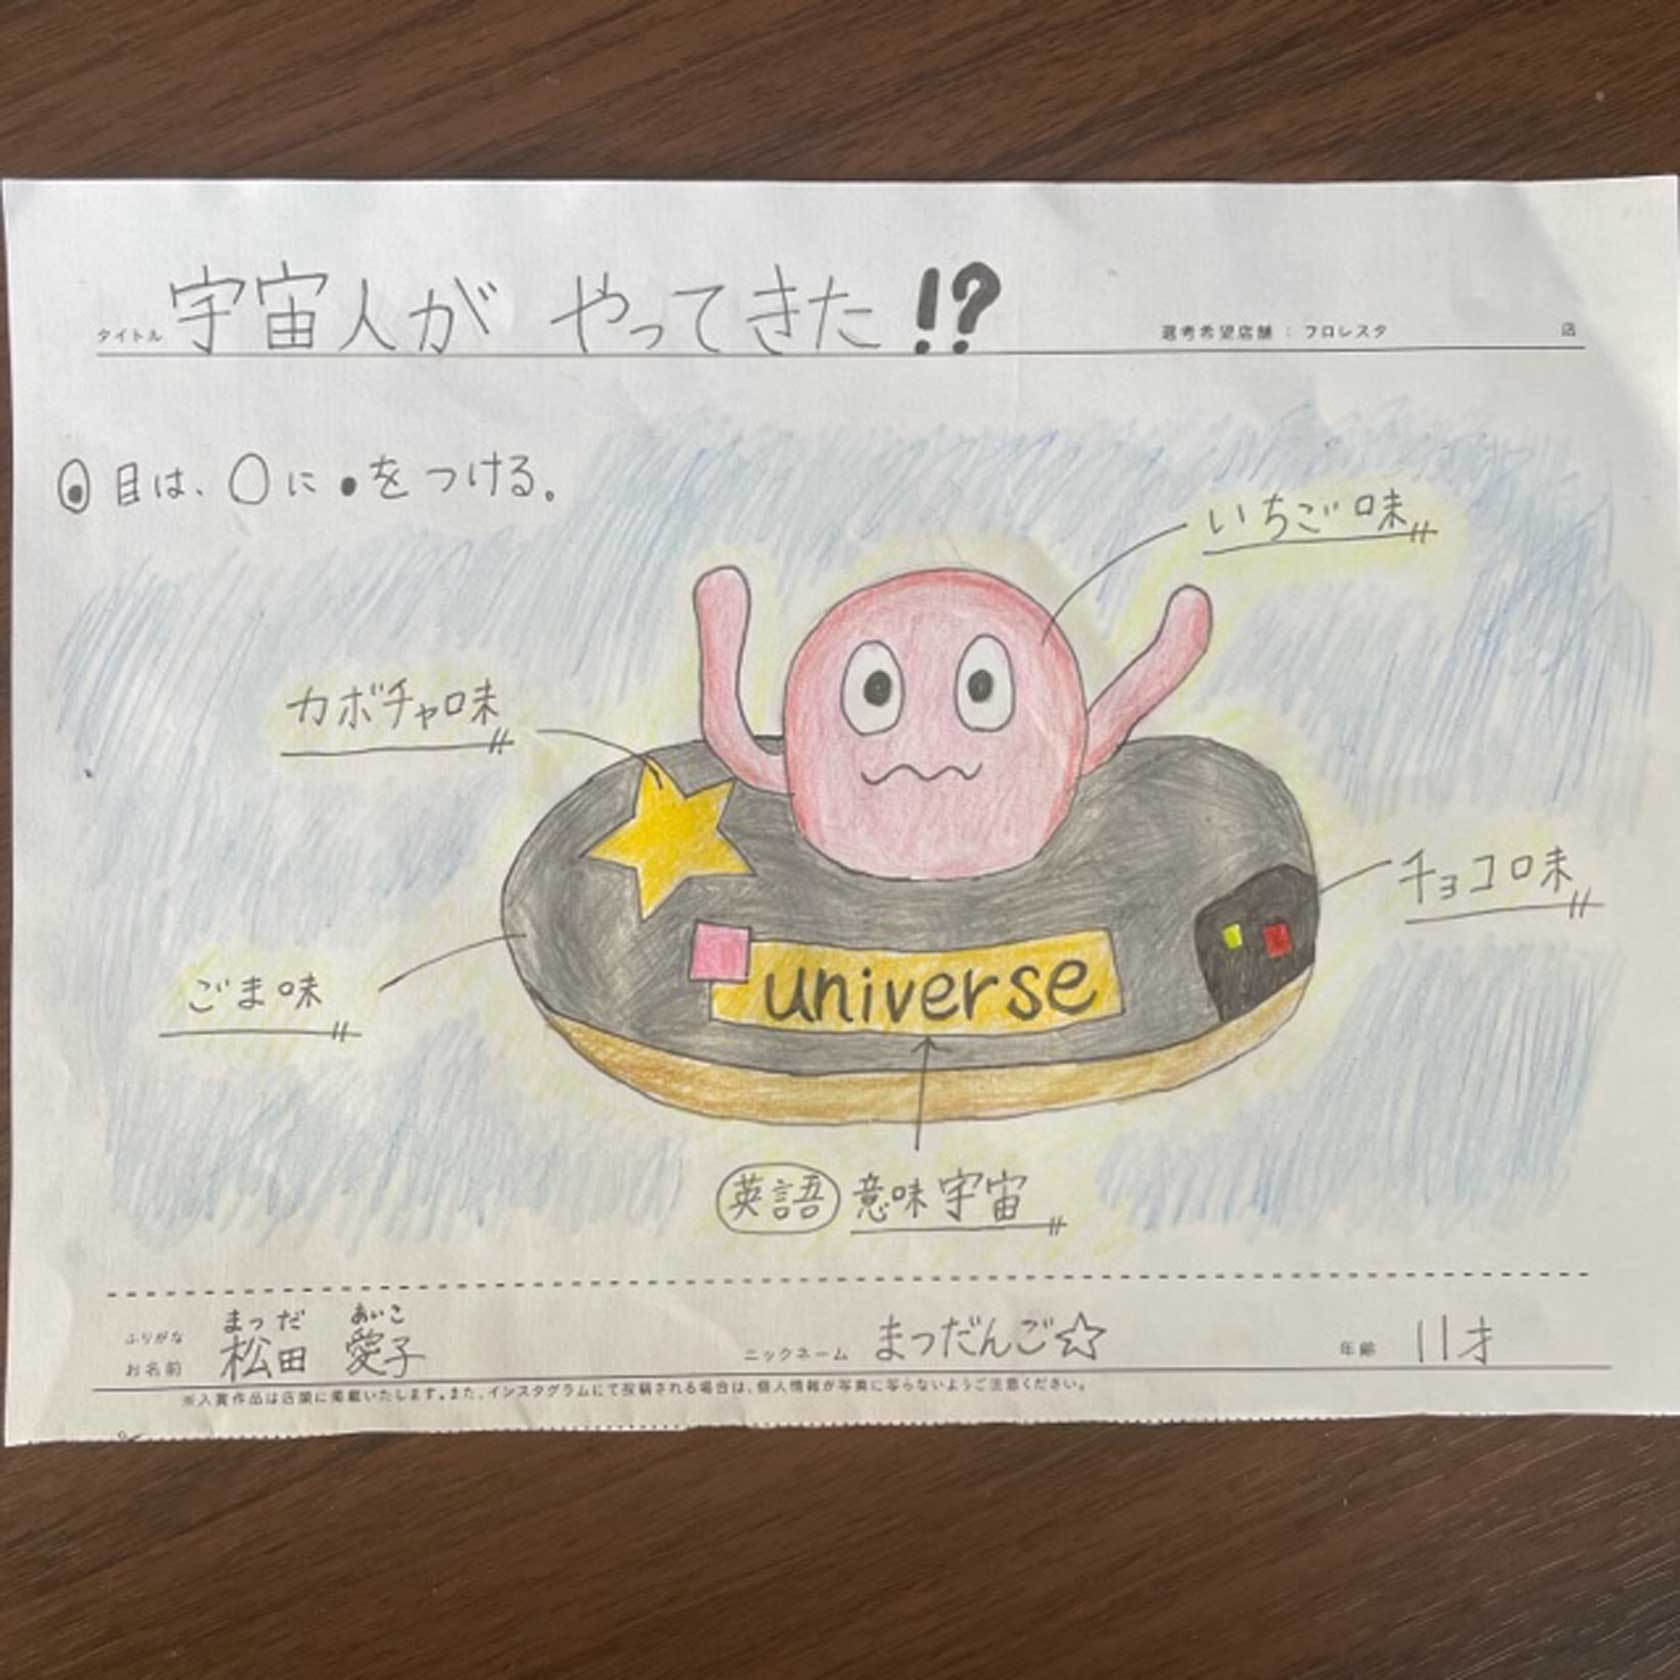 タイトル 宇宙人が やってきた!?
選考希望店舗 : フロレスタ 店
目は、○に・をつける。
いちご味
カボチャ味
チョコ味
ごま味
universe
英語 意味宇宙
ふりがな まつだ あいこ
お名前 松田 愛子
ニックネーム まつだんご☆
年齢 11才
※入賞作品は店頭に掲載いたします。また、インスタグラムにて投稿される場合は、個人情報が写真に写らないようご注意ください。